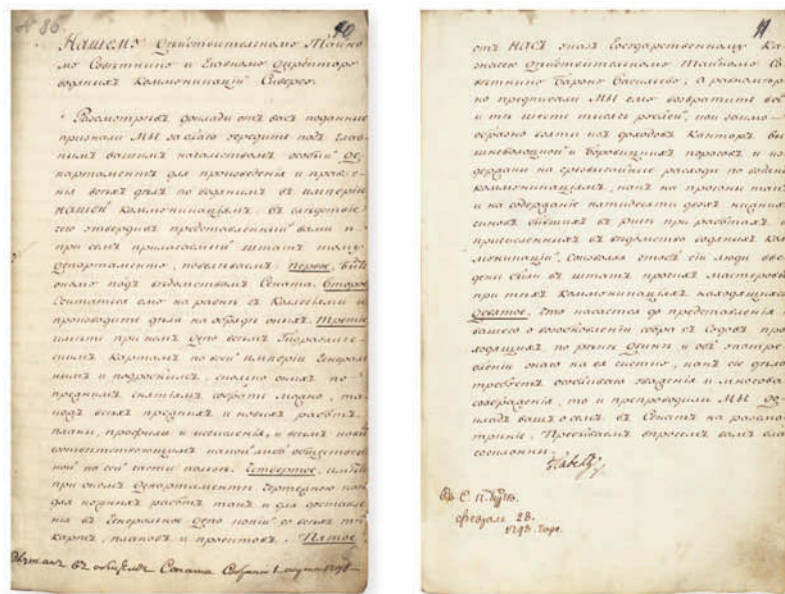 № 86.
40
Нашему Действительному Тайно-
му Советнику и Главному Директору
водяных Коммуникаций Сиверсу.
Разсмотрев доклады от вас поданные
признали МЫ за благо учредить под глав-
ным вашим начальством особый Де-
партамент для произведения и правле-
ния всех дел по водяным в империи
НАШЕЙ Коммуникациям. В следствие
сего утвердив представленный вами и
при сем прилагаемый штат тому
Департаменту, повелеваем: Первое, быть
оному под ведомством Сената. Второе
Считаться ему на равне с Коллегиями и
производить дела на образ оных. Третие
иметь при нем Депо всем Гидравличе-
ским Картам по всей империи Генераль-
ным и подробным, сколько оных по
прежним снятиям собрать можно, та-
под всех прежних и новых работ
планы, профили и исчисления, и всем
соответствующим какой либо обществен-
ной по сей части пользе. Четвертое, иметь
при оном Департаменте Чертежную как
для нужных работ так и для доставле-
ния в Генеральное Депо копий со всех тех
карт, планов и проектов. Пятое,
Читан в общем Сената Собрании 1 марта 1798
41
от НАС указ Государственному Ка-
значею Действительному Тайному Со-
ветнику Барону Васильеву; а равномер-
но предписали МЫ ему возвратить все
и те шесть тысяч рублей, кои заимо-
образно взяты из доходов Кантор Вы-
шневолоцкой и Боровицких порогов и из-
держаны на чрезвычайные расходы по водяным
коммуникациям, как на прогоны так
и на содержание пятидесяти двух нижних
чинов бывших в при работах и
причисленных в ведомство водяных Ком-
муникаций. Соизволяя чтоб сии люди вве-
дены были в штат прочих мастеровых
при тех Коммуникациях находящихся
Девятое. Что касается до представления
вашего о возобновлении сбора с Судов про-
ходящих по реке Цне и об употреб-
лении онаго на ея систему, как сие дело
требует особливаго уважения и многова
соображения, то и препроводили МЫ до-
клад ваш о сем в Сенат на разсмо-
трение. Пребываем впрочем вам бла-
госклонны.
Павел
В С. П. бурге.
февраля 28.
1798 года.